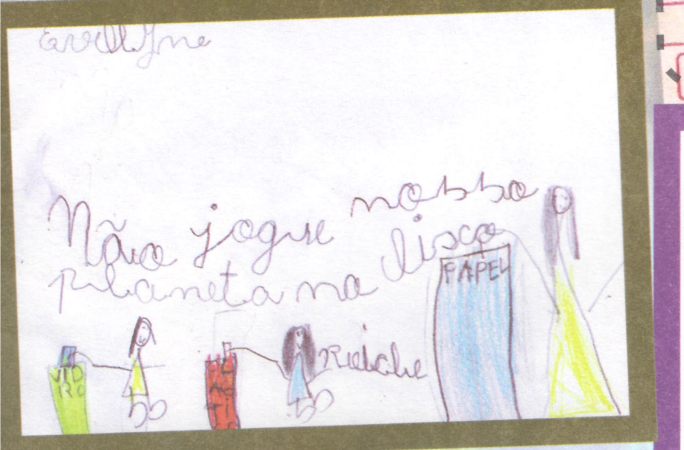 Evellyne
Não jogue nosso
planeta no lisço
PAPEL
VID
RO
Reicle